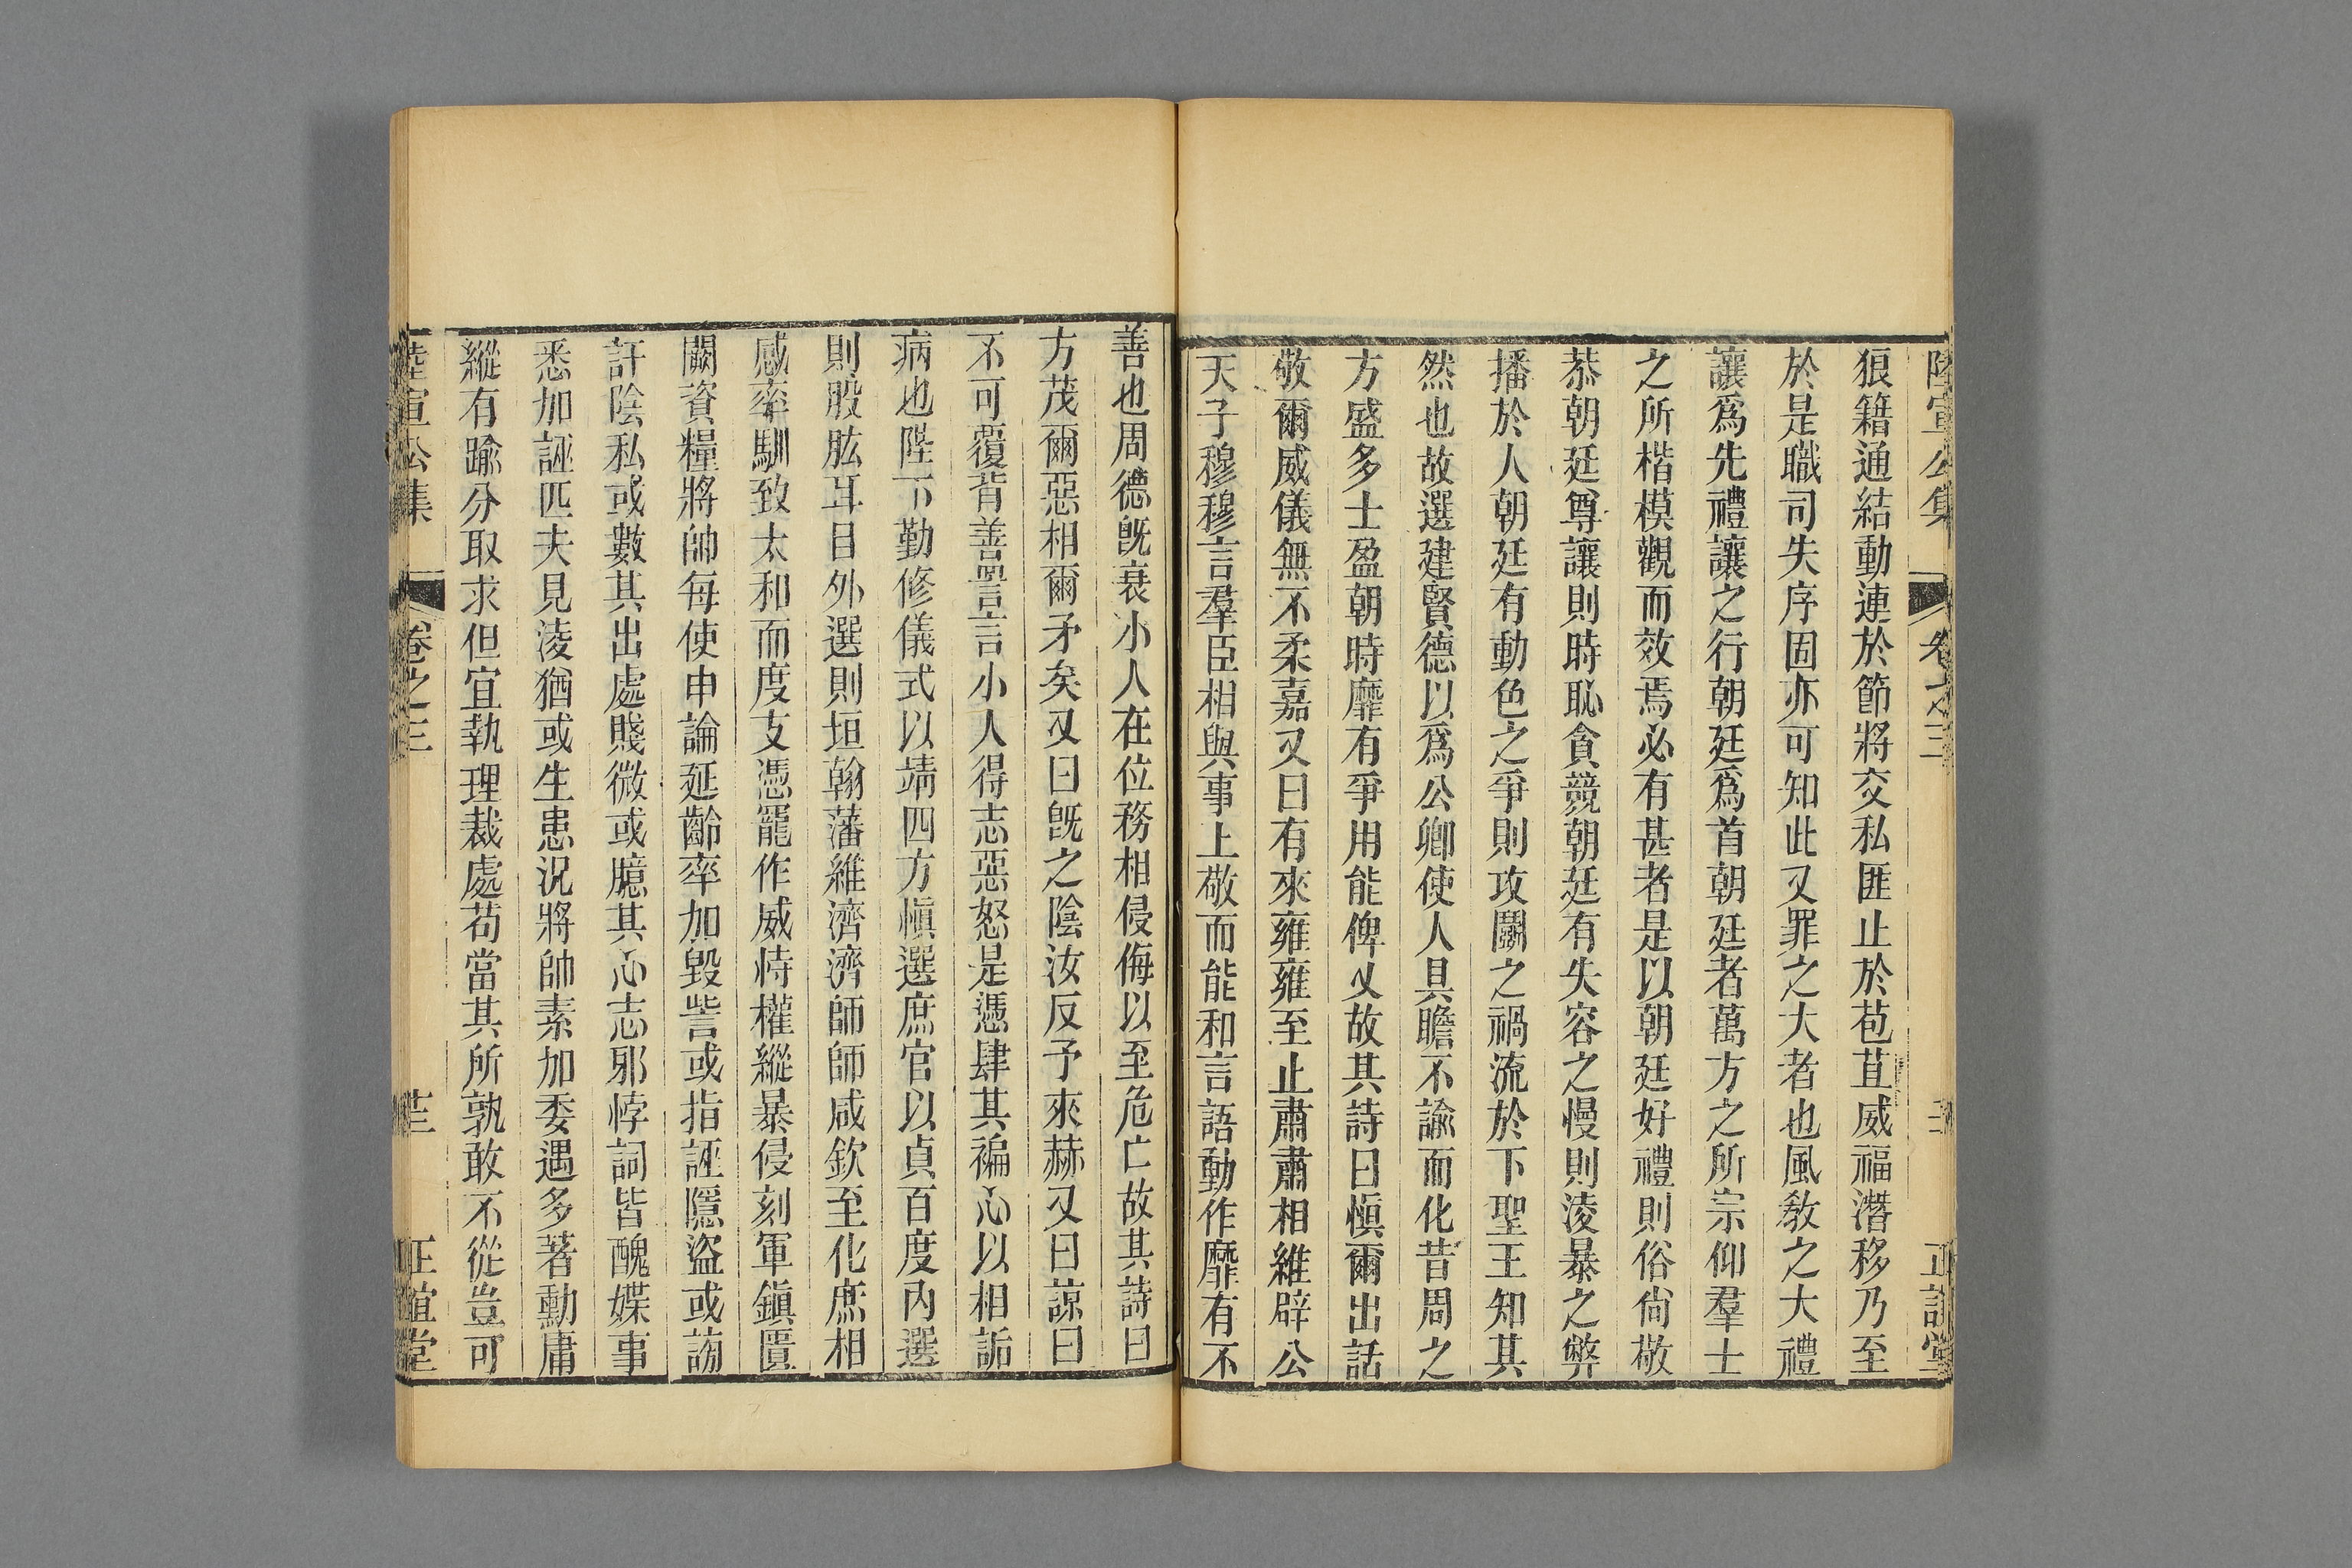 陸宣公集 卷之三 正誼堂
狼籍通結動連於節將交私匪止於苞苴威福潛移乃至
於是職司失序固亦可知此又罪之大者也風敎之大禮
讓爲先禮讓之行朝廷爲首朝廷者萬方之所宗仰羣士
之所楷模觀而效焉必有甚者是以朝廷好禮則俗尙敬
恭朝廷尊讓則時恥貪競朝廷有失容之慢則淩暴之弊
播於人朝廷有動色之爭則攻鬭之禍流於下聖王知其
然也故選建賢德以爲公卿使人具瞻不諭而化昔周之
方盛多士盈朝時靡有爭用能俾乂故其詩曰愼爾出話
敬爾威儀無不柔嘉又曰有來雍雍至止肅肅相維辟公
天子穆穆言羣臣相與事上敬而能和言語動作靡有不
善也周德旣衰小人在位務相侵侮以至危亡故其詩曰
方茂爾惡相爾矛矣又曰旣之陰汝反予來赫又曰諒曰
不可覆背善詈言小人得志惡怒是憑肆其褊心以相詬
病也陛下勤修儀式以靖四方愼選庶官以貞百度內選
則股肱耳目外選則垣翰藩維濟濟師師咸欽至化庶相
感率馴致太和而度支憑寵作威恃權縱暴侵刻軍鎭匱
闕資糧將帥每使申論延齡率加毀訾或指誣隱盜或謗
訐陰私或數其出處賤微或臆其心志邪悖詞皆醜媟事
悉加誣匹夫見淩猶或生患況將帥素加委遇多著勳庸
縱有踰分取求但宜執理裁處苟當其所孰敢不從豈可
陸宣公集 卷之三 正誼堂